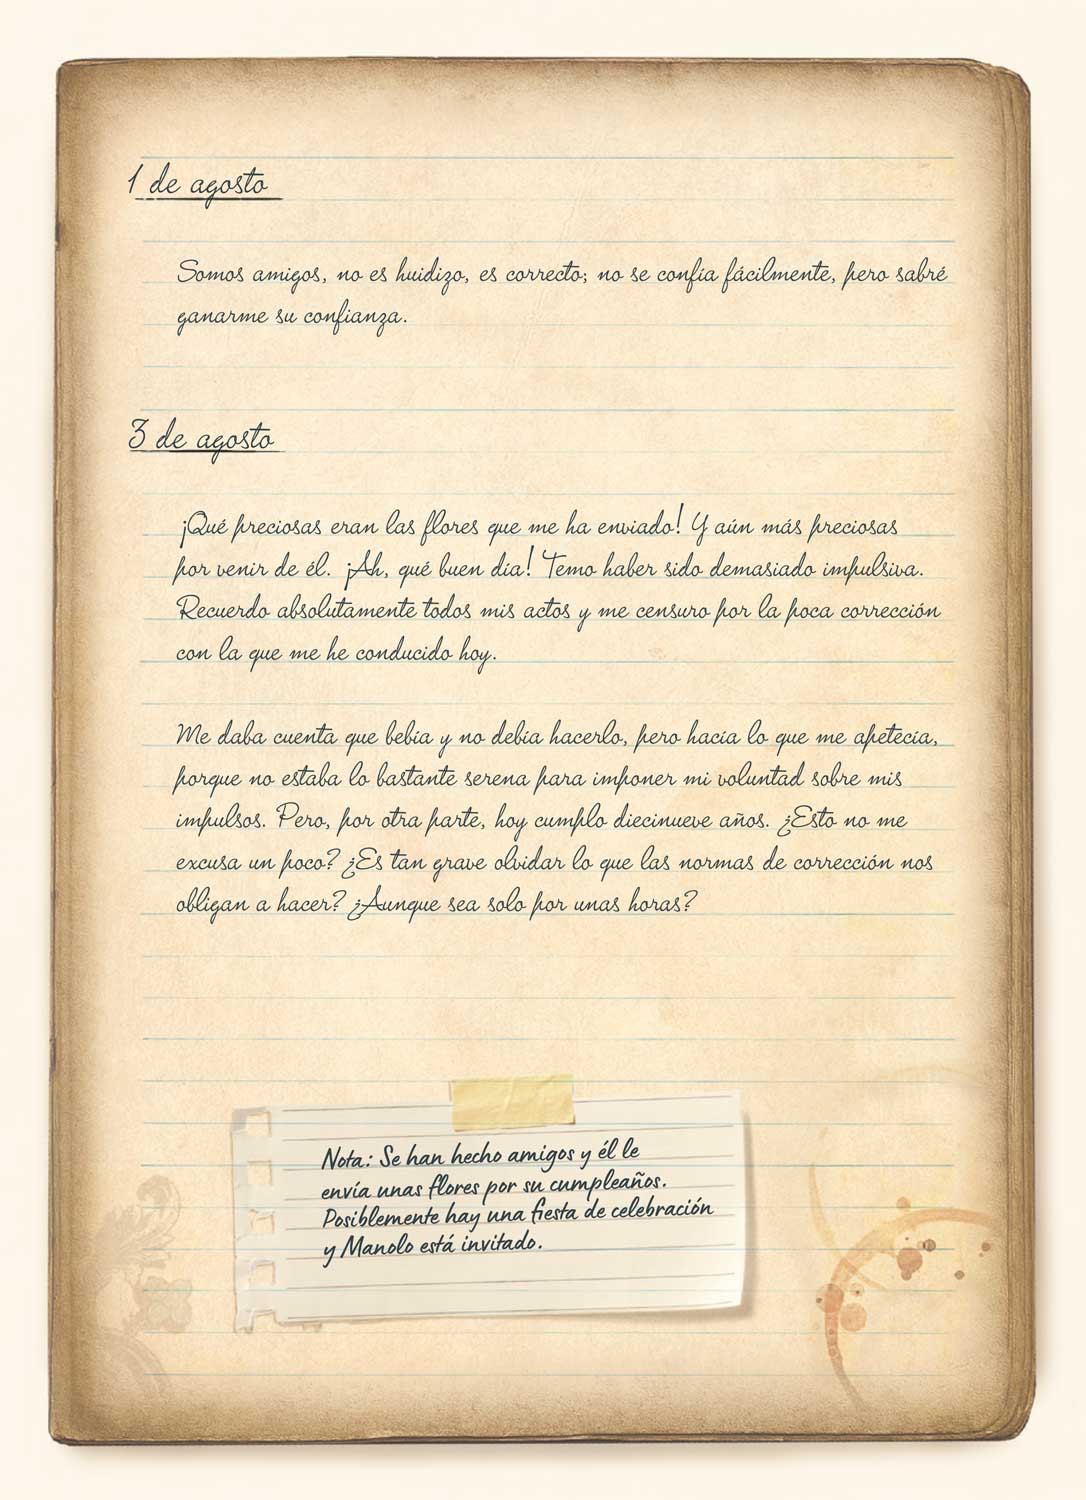 1 de agosto
Somos amigos, no es huidizo, es correcto; no se confía fácilmente, pero sabré
ganarme su confianza.
3 de agosto
¡Qué preciosas eran las flores que me ha enviado! Y aún más preciosas
por venir de él. ¡Ah, qué buen día! Temo haber sido demasiado impulsiva.
Recuerdo absolutamente todos mis actos y me censuro por la poca corrección
con la que me he conducido hoy.
Me daba cuenta que bebía y no debía hacerlo, pero hacía lo que me apetecía,
porque no estaba lo bastante serena para imponer mi voluntad sobre mis
impulsos. Pero, por otra parte, hoy cumplo diecinueve años. ¿Esto no me
excusa un poco? ¿Es tan grave olvidar lo que las normas de corrección nos
obligan a hacer? ¿Aunque sea solo por unas horas?
Nota: Se han hecho amigos y él le
envía unas flores por su cumpleaños.
Posiblemente hay una fiesta de celebración
y Manolo está invitado.